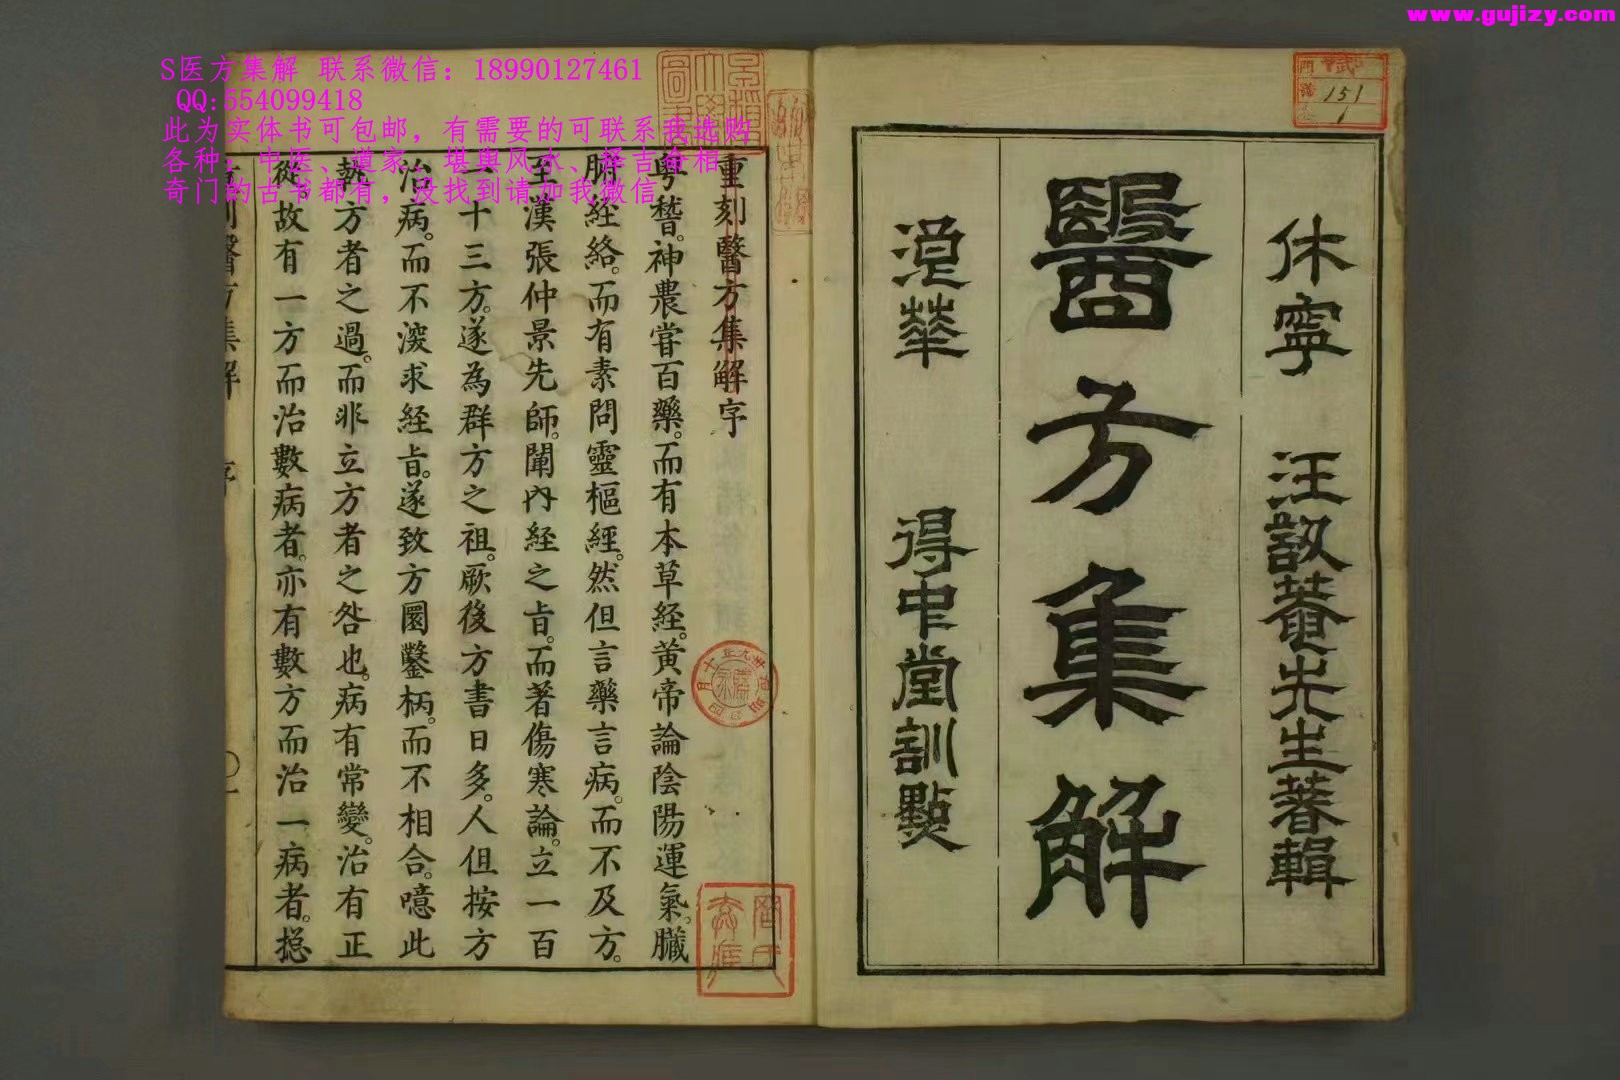 www.gujizy.com
S医方集解 联系微信：18990127461
QQ:554099418
此为实体书可包邮，有需要的可联系我选购
各种：中医、道家、堪舆风水、择吉奇相、
奇门的古书都有，没找到请加我微信
151
1
休寧 汪訒菴先生著輯
醫方集解
混華 得中堂訓點
重刻醫方集解字
粤稽。神農嘗百藥。而有本草経。黄帝論陰陽運氣。臓
腑経絡。而有素問靈樞經。然但言藥言病。而不及方。
至漢張仲景先師。闡內経之旨。而著傷寒論。立一百
一十三方。遂為群方之祖。厥後方書日多。人但按方
治病。而不深求経旨。遂致方圜鑿柄。而不相合。噫此
執方者之過。而非立方者之咎也。病有常變。治有正
從。故有一方而治數病者。亦有數方而治一病者。揔